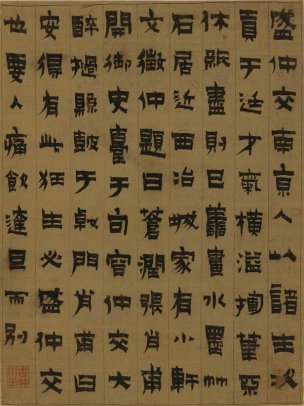 盛仲交南京人以諸生次
貢于廷才氣橫溢揮筆不
休紙盡則已譱畫水墨竹
石居近西冶城家有小軒
文徵仲題曰蒼潤張肖甫
開御史臺于句容仲交大
醉撾縣鼓于戟門肖甫曰
安得有此狂生必盛仲交
也要入痛飲達旦而別